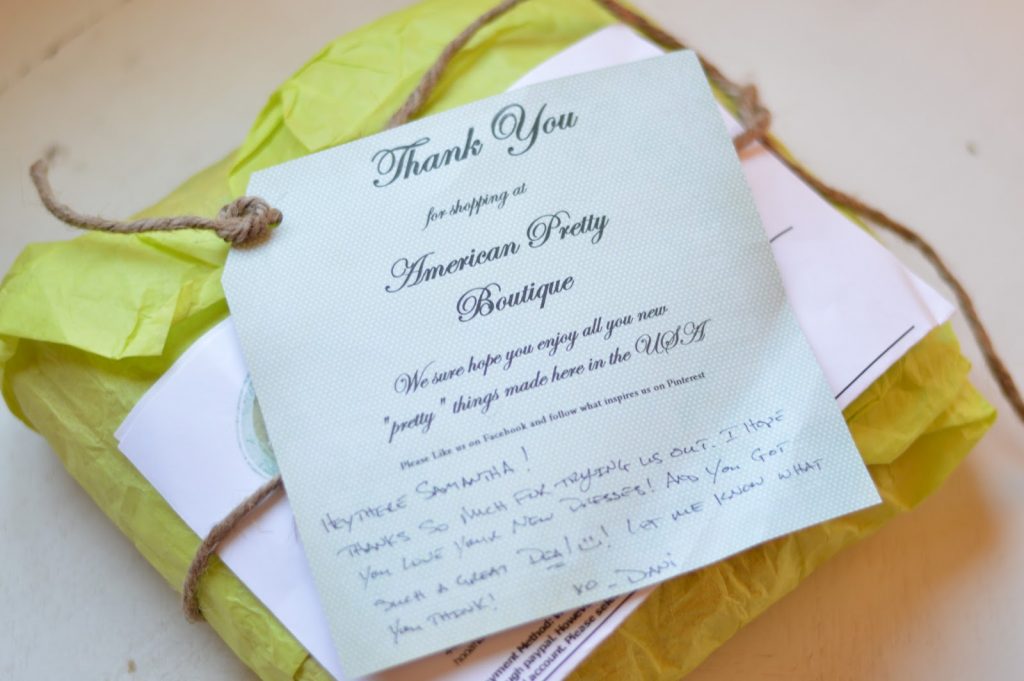 Thank You
for shopping at
American Pretty
Boutique
We sure hope you enjoy all you new
"pretty" things made here in the USA
Please Like us on Facebook and follow what inspires us on Pinterest
HEY THERE SAMANTHA!
THANKS SO MUCH FOR TRYING US OUT. I HOPE
YOU LOVE YOUR NEW DRESSES! AND YOU GOT
SUCH A GREAT DEAL! LET ME KNOW WHAT
YOU THINK! XO - DANI
yment Method:
ugh paypal. Howev
l account. Please sele